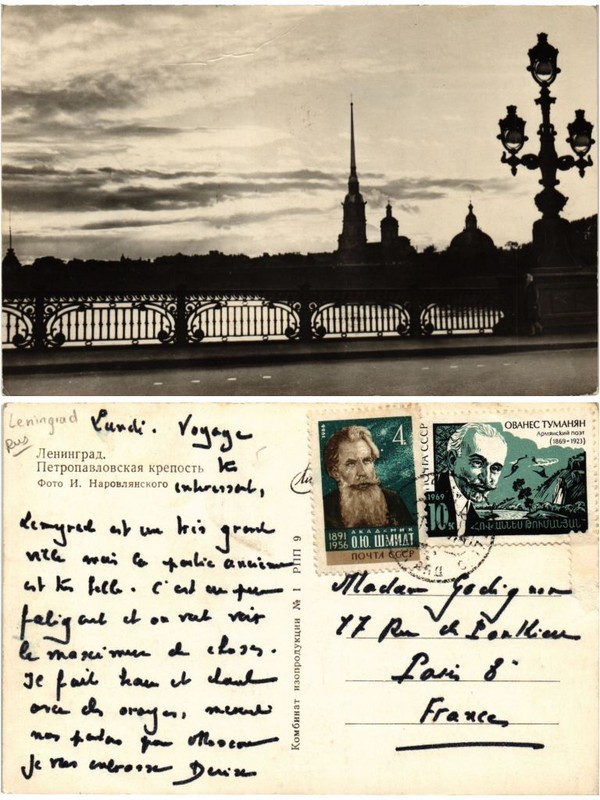 Leningrad
Rus
Lundi. Voyage
très
intéressant,
Ленинград.
Петропавловская крепость
Фото И. Наровлянского
Leningrad est une très grande
ville mais la partie ancienne
est très belle. C'est un peu
fatigant et on veut voir
le maximum de choses.
Il fait beau et chaud
avec des orages, mercredi
nous partons pour Moscou
Je vous embrasse Denise
Комбинат изопродукции № 1 РПП 9
1968
4
АКАДЕМИК
1891
1956
О.Ю. ШМИДТ
ПОЧТА СССР
ПОЧТА СССР
1969
10К
ОВАНЕС ТУМАНЯН
Армянский поэт
(1869-1923)
ՀՈՎՀԱՆՆԵՍ ԹՈՒՄԱՆՅԱՆ
Madame
17 Rue de Ponthieu
Paris 8e
France